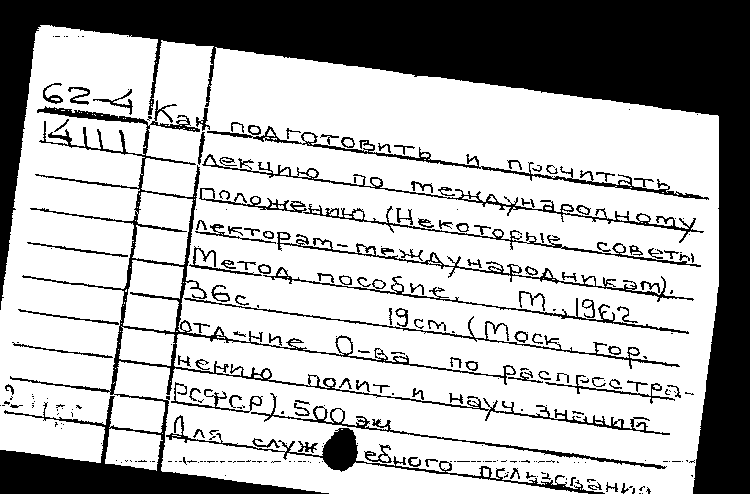 62-4
14111
Как подготовить и прочитать
лекцию по международному
положению. (Некоторые советы
лекторам-международникам).
Метод. пособие. М., 1962.
36с. 19см. (Моск. гор.
отд-ние О-ва по распростра-
нению полит. и науч. знаний
РСФСР). 500 экз
Для служебного пользования